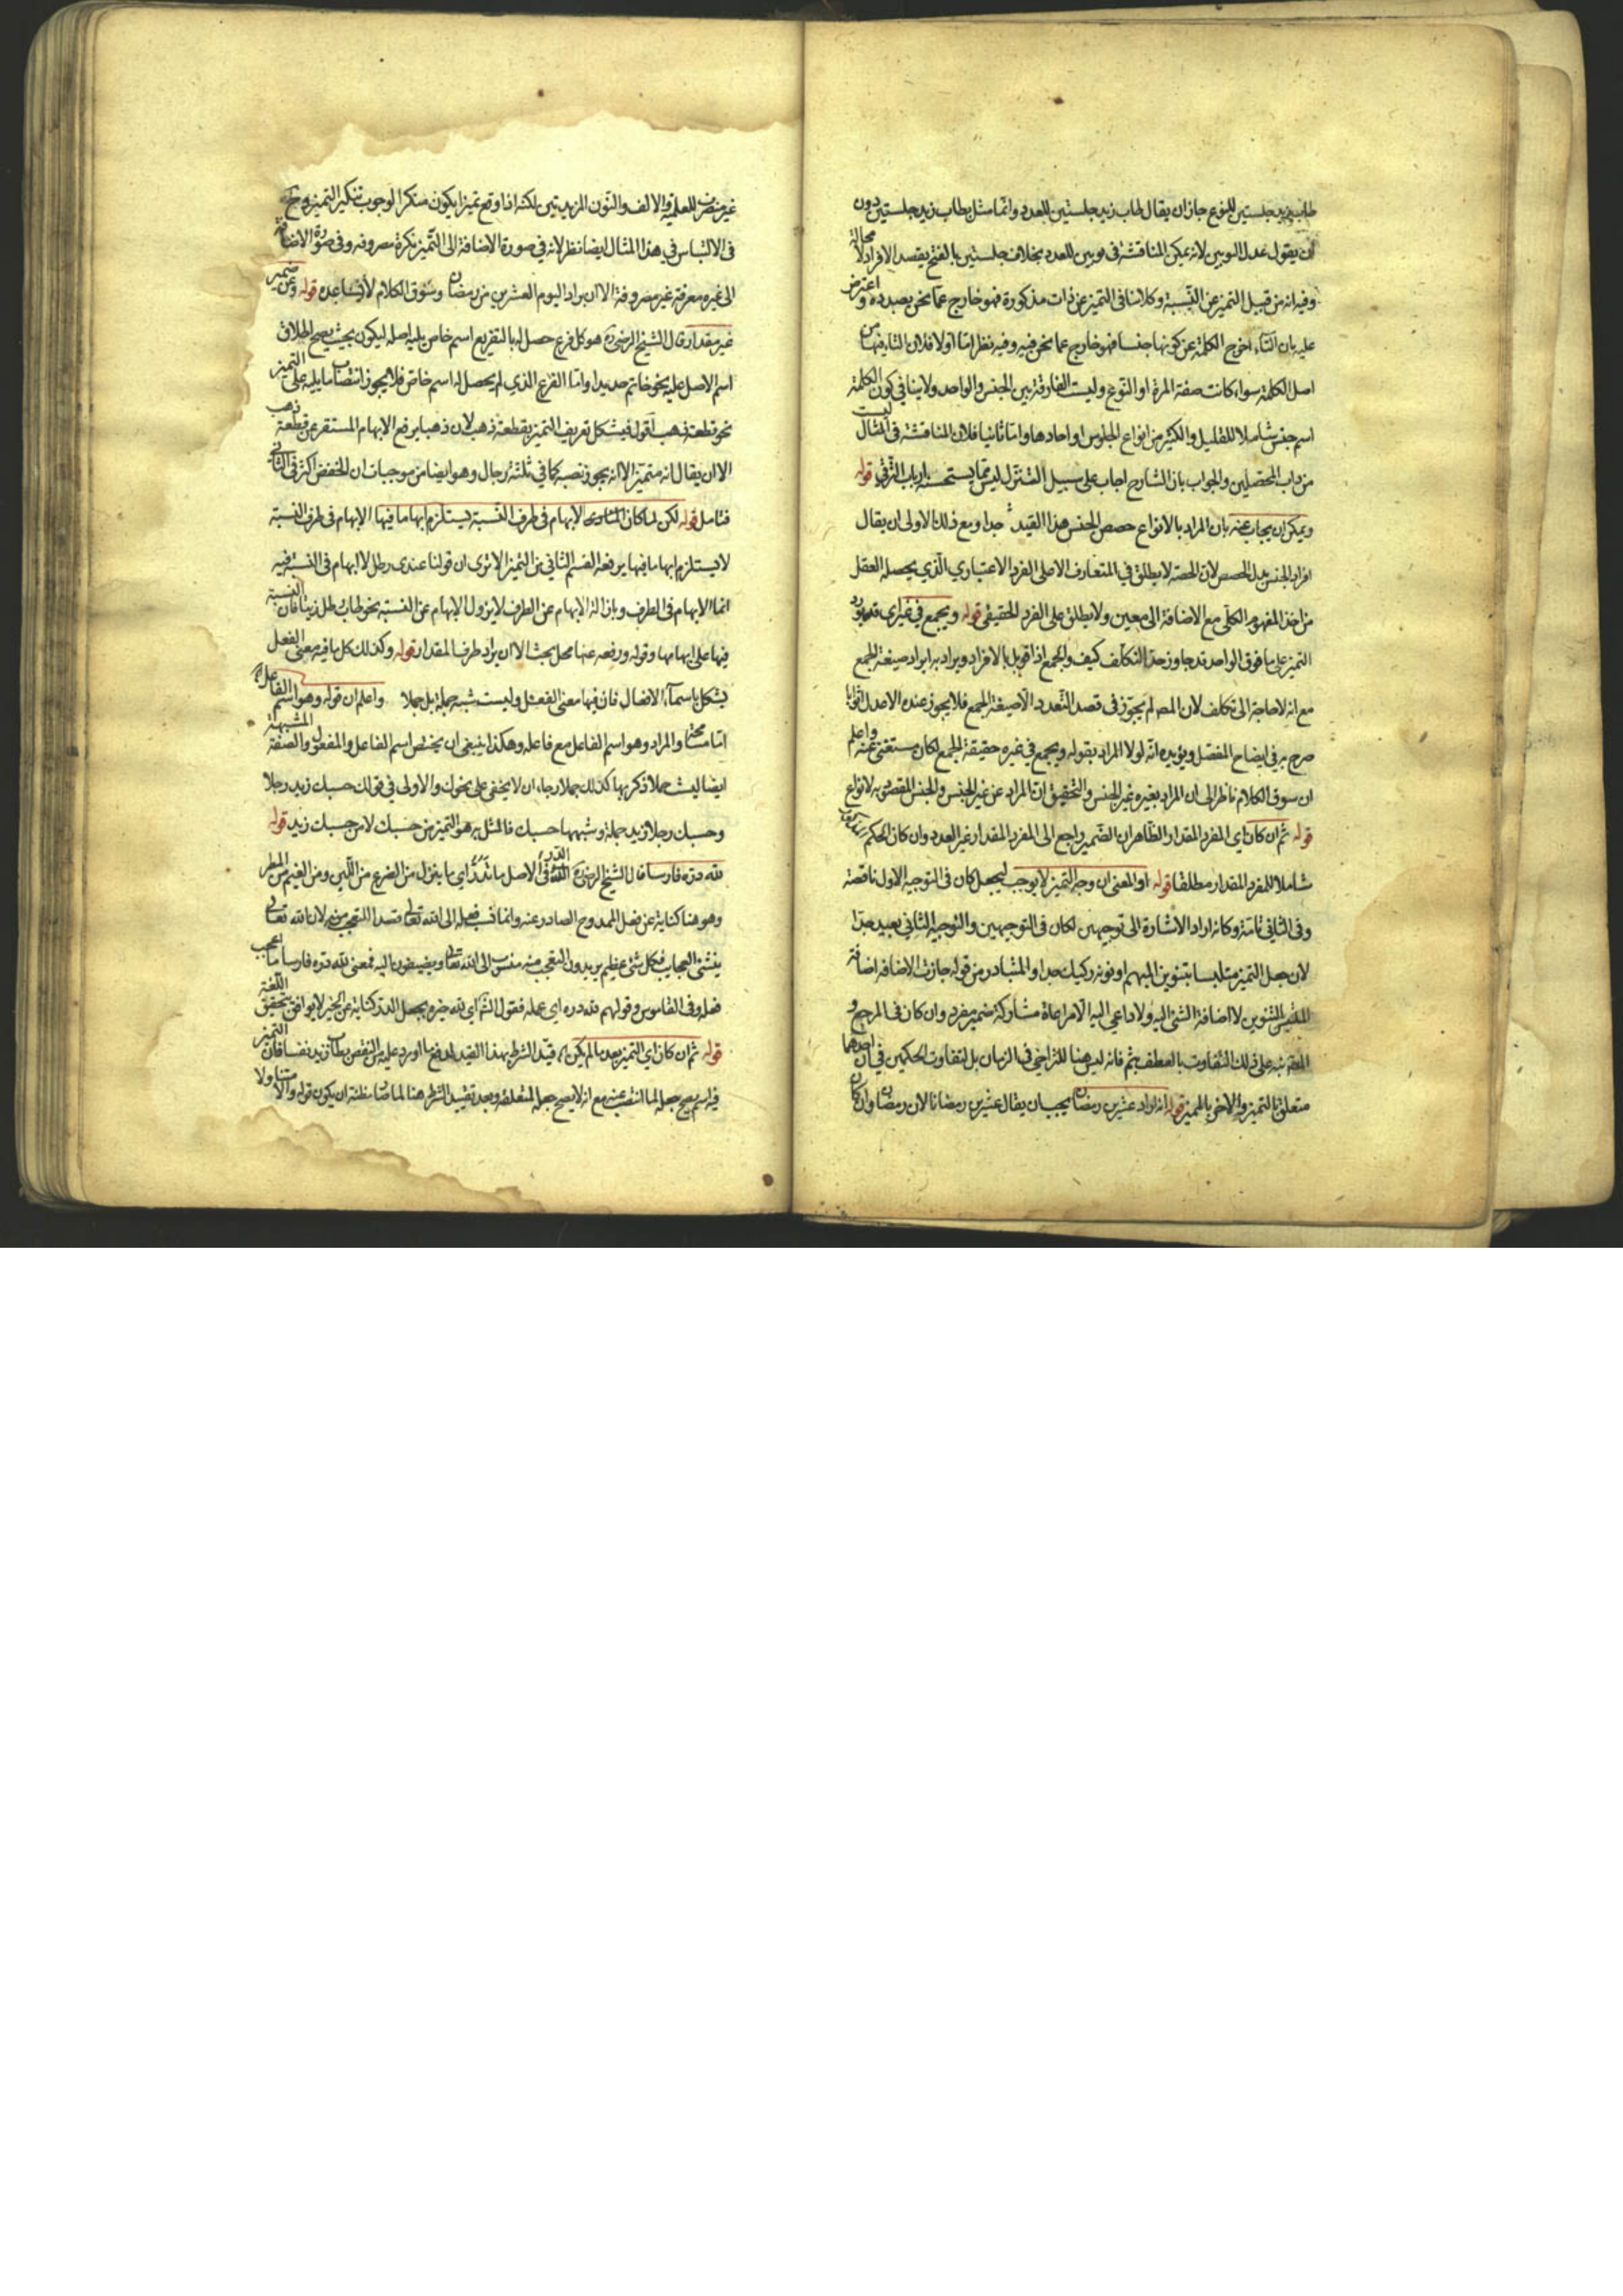 طاب زيد جلستين للنوع جاز ان يقال طاب زيد جلستين للعدد وانما مثل بطاب زيد جلستين دون
ان يقول عدل ثوبين لانه يمكن المناقشة فى ثوبين للعدد بخلاف جلستين بالفتح يقصد الافراد لا محالة
وفيه انه من قبيل التميز عن النسبة وكلامنا فى التميز عن ذات مذكورة فهو خارج عما نحن بصدده واعترض
عليه بان التاء اخرج الكلمة عن كونها جنسا فهو خارج عما نحن فيه وفيه نظر اما اولا فلان التاء فيها من
اصل الكلمة سواء كانت صفة المرة او النوع وليست الفارقة بين الجنس والواحد ولا ينافى كون الكلمة
اسم جنس شاملا للقليل والكثير من انواع الجلوس او احادها واما ثانيا فلان المناقشة فى المثال ليست
من داب المحصلين والجواب بان الشارح اجاب على سبيل التنزل ليس مما يستحسنه ارباب الترقى قوله
ويمكن ان يجاب عنه بان المراد بالانواع حصص الجنس هذا القيد جدا ومع ذلك الاولى ان يقال
افراد الجنس بدل الحصص لان الحصة لا يطلق فى المتعارف الا على الفرد الاعتبارى الذى يحصله العقل
من اخذ المفهوم الكلى مع الاضافة الى معين ولا يطلق على الفرد الحقيقى قوله ويجمع فى غيره اى تورد
التميز على ما فوق الواحد قد جاوز حد التكلف كيف والجمع اذا قوبل بالافراد ويراد به ايراد صيغة الجمع
مع انه لا حاجة الى تكلف لان المص لم يجوز فى قصد التعدد الا صيغة الجمع فلا يجوز عنده الا عدل اثوابا
صرح به فى ايضاح المفصل ويؤيده انه لولا المراد بقوله ويجمع فى غيره حقيقة الجمع لكان مستغنى عنه واعلم
ان سوق الكلام ناظر الى ان المراد بغيره غير الجنس والتحقيق ان المراد غير الجنس والجنس المقصود به الانواع
قوله ثم ان كان اى المفرد المقدار الظاهر ان الضمير راجع الى المفرد المقدار غير العدد وان كان الحكم
شاملا للمفرد المقدار مطلقا قوله او المعنى ان وجد التميز لا يوجب ليجعل كان فى التوجيه الاول ناقصة
وفى الثانى تامة وكانه اراد الاشارة الى توجيهين لكان فى التوجيهين والتوجيه الثانى بعيد جدا
لان جعل التميز متلبسا بتنوين المبهم او نونه ركيك جدا والمتبادر من قوله جازت الاضافة اضافة
التنوين لا اضافة الشئ اليه ولا داعى اليه الا مراعاة مشاركة ضمير مفرد وان كان فى المرجع و
نبه على ذلك التفاوت بالعطف بثم فانه ليس هنا للتراخى فى الزمان بل لتفاوت الحكمين فى ان احدهما
متعلق بالتميز والاخر بالمميز قوله انه اراد عشرين رمضان يجب ان يقال عشرين رمضانا لان رمضان وان كان
غير منصرف للعلمية والالف والنون المزيدتين لكنه اذا وقع تميزا يكون منكرا لوجوب تنكير التميز وح
فى الالتباس فى هذا المثال ايضا نظر لانه فى صورة الاضافة الى التميز نكرة مصروفة وفى صورة الاضافة
الى غيره معرفة غير مصروفة الا ان يراد اليوم العشرين من رمضان وسوق الكلام لا يساعده قوله وعن غير
غير مقدار قال الشيخ الرضى هو كل فرع حصل له بالتفريع اسم خاص يليه اصله ليكون بحيث يصح اطلاق
اسم الاصل عليه نحو خاتم حديدا واما الفرع الذى لم يحصل له اسم خاص فلا يجوز انتصاب ما يليه على التميز
نحو قطعة ذهب اقول فيشكل تعريف التميز بقطعة ذهب لان ذهبا يرفع الابهام المستقر عن قطعة ذهب
الا ان يقال انه متميز الا انه يجوز نصبه كما فى ثلثة رجال وهو ايضا من موجبات ان الخفض اكثر فى الثانى
فتامل قوله لكن لما كان الابهام فى طرف النسبة يستلزم ابهاما فيها الابهام فى طرف النسبة
لا يستلزم ابهاما فيها يرفعه القسم الثانى من التميز الا ترى ان قولنا عندى رطل لا ابهام فى النسبة فيه
انما الابهام فى الطرف وبازالة الابهام عن الطرف لا يزول الابهام عن النسبة نحو طاب رطل زيتا فان النسبة
فيها على ابهامها وقوله ورفعه عنها محل بحث الا ان يراد طرف المقدار قوله وكذلك كل ما فيه معنى الفعل
يشكل باسماء الافعال فان فيها معنى الفعل وليست شبه جملة بل جملا واعلم ان قوله وهو اسم الفاعل
اما مسامحة والمراد وهو اسم الفاعل مع فاعله وهكذا ينبغى ان يختص اسم الفاعل والمفعول والصفة المشبهة
ايضا ليست جملا ذكر بها كذلك جملا رجاء ان لا يخفى على نحوك والاولى فى قولك حسبك زيد رجلا
وحسبك رجلا زيد جملة وشبهها حسبك فالمثل به هو التميز من حسبك لا من حسبك زيد قوله
لله دره فارسا قال الشيخ الرضى الدر فى الاصل ما يدر اى ما ينزل من الضرع من اللبن ومن الغيم من المطر
وهو هنا كناية عن فعل الممدوح الصادر عنه وانما نسب فعله الى الله تعالى قصدا للتعجب منه لان الله تعالى
ينشئ العجايب فكل شئ عظيم يريدون التعجب منه ينسبون الى الله تعالى ويضيفونه اليه فمعنى لله دره فارسا ما اعجب
فعله وفى القاموس وقولهم لله دره اى عمله فقول الشم اى لله خيره بجعل الدر كناية عن الخير لا يوافق تحقيق اللغة
قوله ثم ان كان اى التميز بعد ما لم يكن قيد الشرط بهذا القيد لدفع ما اورد عليه من النقض بطاب زيد نفسا فان التميز
فيه اسم يصح جعله لما انتصب عنه مع انه لا يصح جعله لمتعلقه وبعد تقييد الشرط هنا لما صار مظنة ان يكون قوله والا متناولا